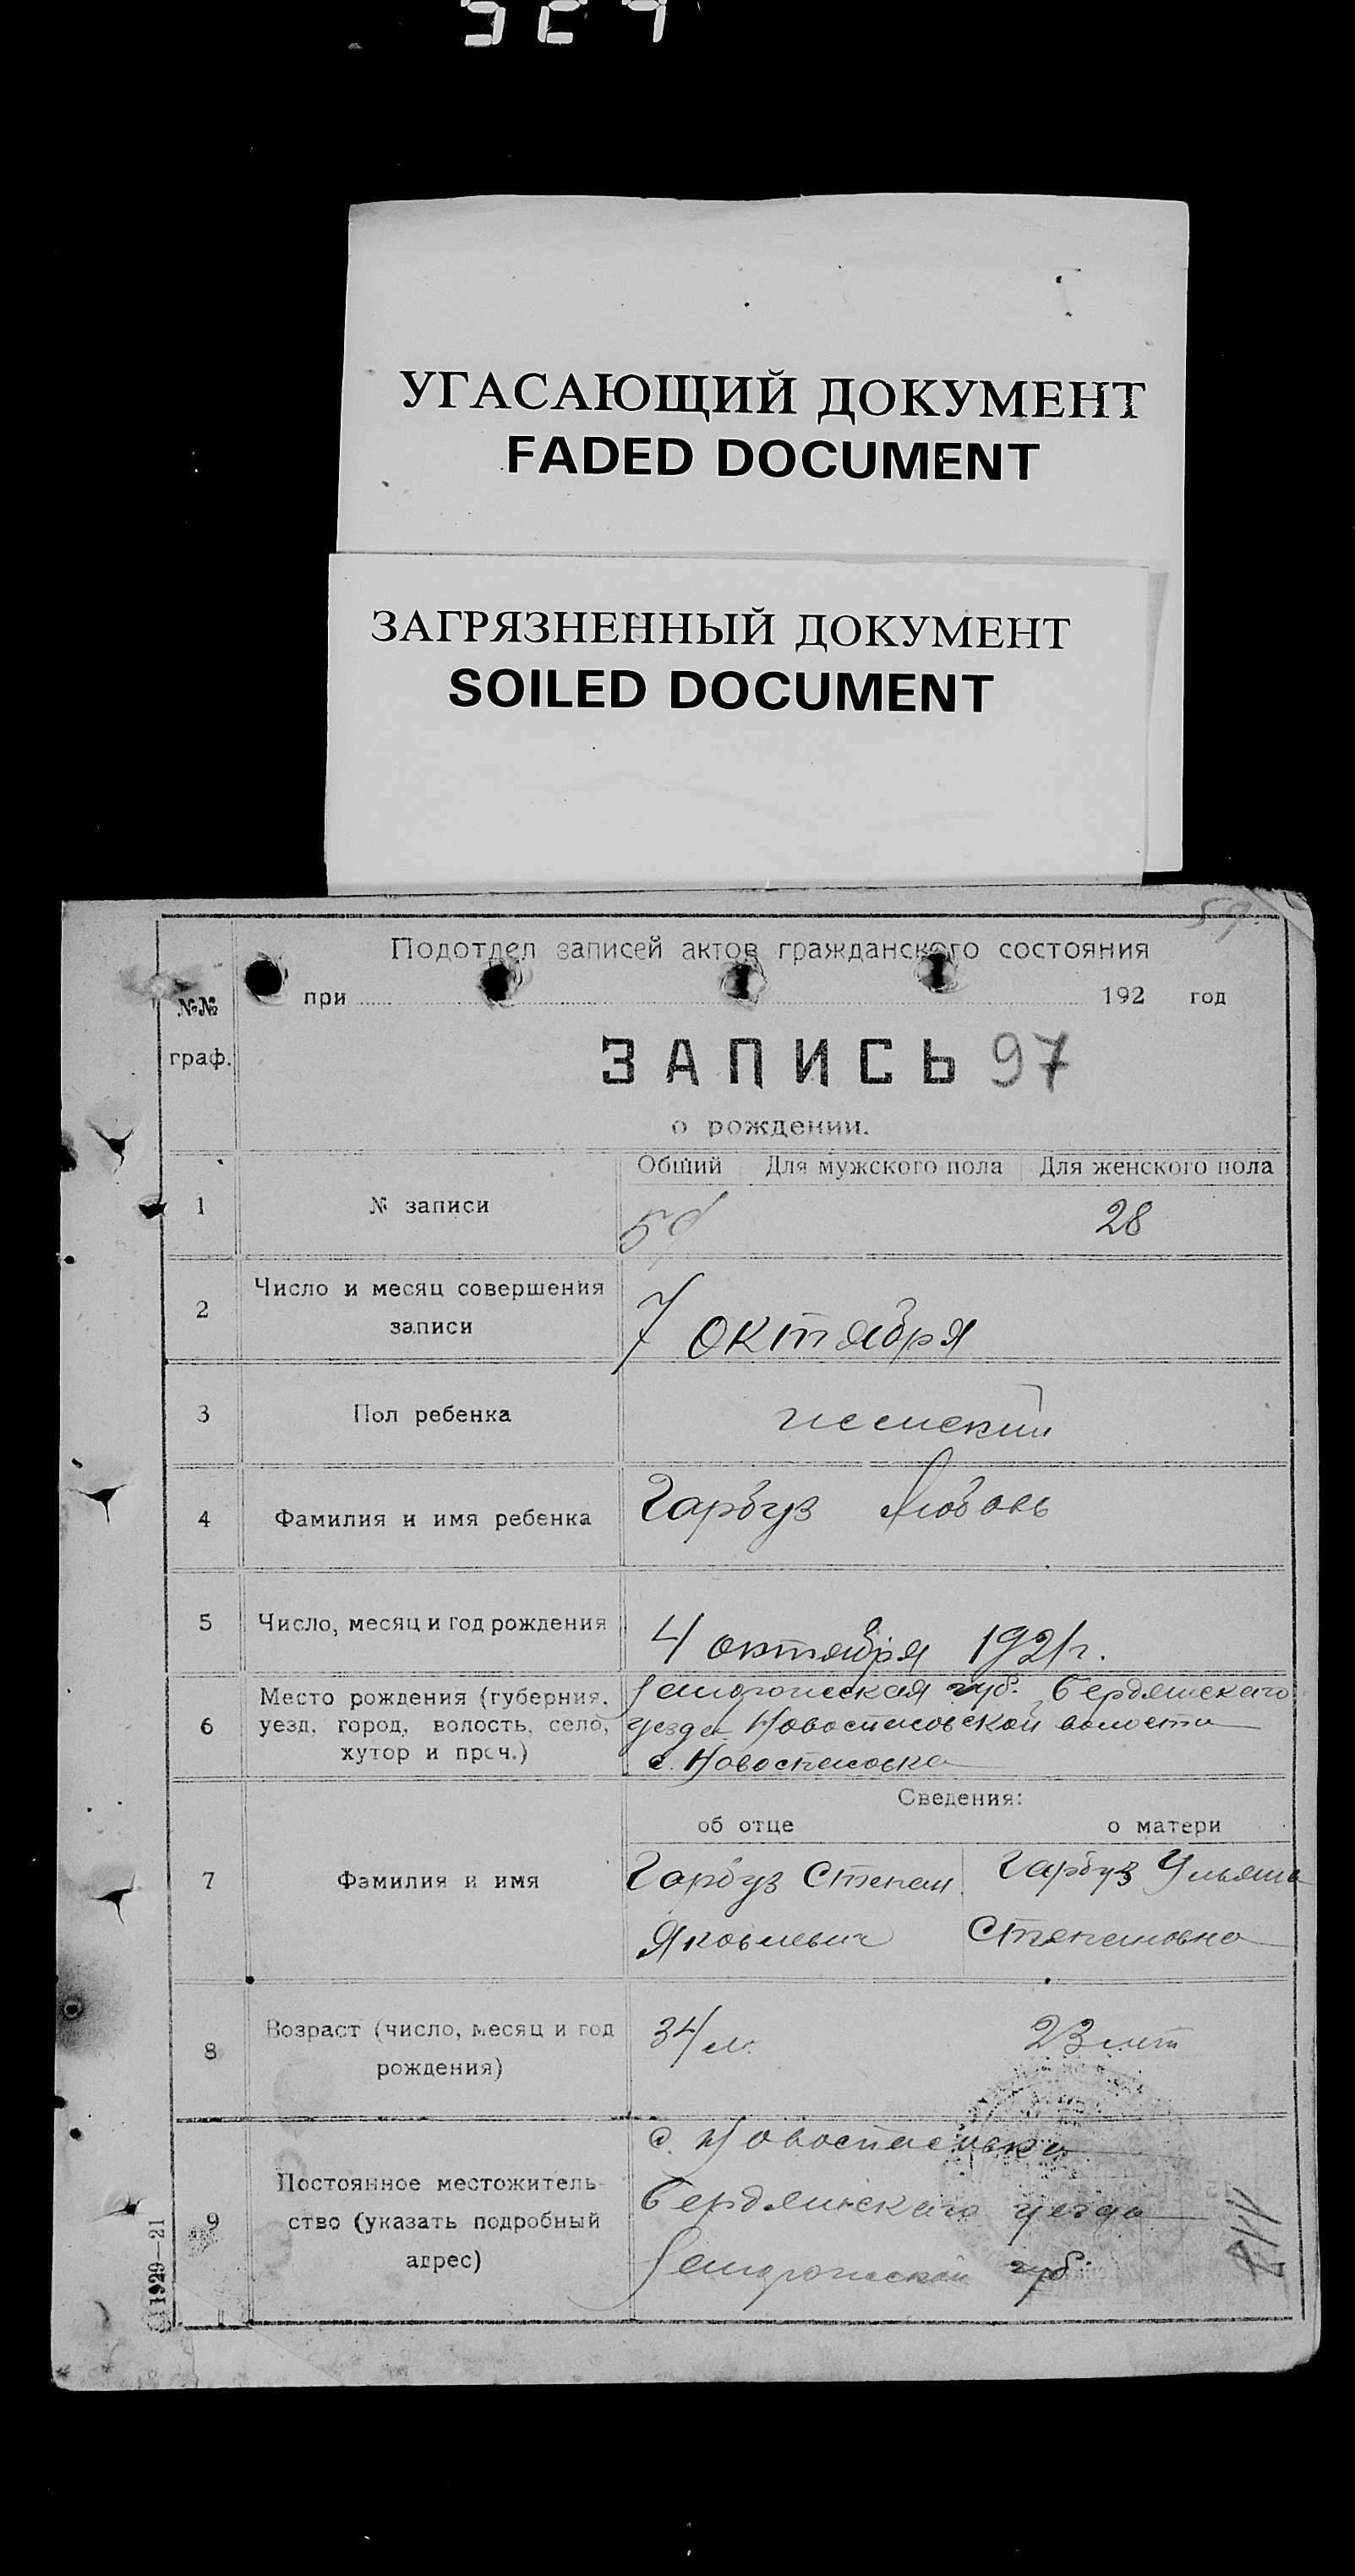 УГАСАЮЩИЙ ДОКУМЕНТ
FADED DOCUMENT
ЗАГРЯЗНЕННЫЙ ДОКУМЕНТ
SOILED DOCUMENT
Подотдел записей актов гражданского состояния
№№ граф.
при 192 год
ЗАПИСЬ 97
о рождении.
Общий Для мужского пола Для женского пола
1 № записи 28
2 Число и месяц совершения записи
7 октября
3 Пол ребенка женский
4 Фамилия и имя ребенка Гарбуз Любовь
5 Число, месяц и год рождения 4 октября 1921 г.
6 Место рождения (губерния, уезд, город, волость, село, хутор и проч.)
губ. Бердянскаго
уезда Новоспасовской волости
с. Новоспасовка
Сведения:
об отце о матери
7 Фамилия и имя
Гарбуз Степан Гарбуз Ульяна
Яковлевич Степановна
8 Возраст (число, месяц и год рождения)
34 23 лет
9 Постоянное местожительство (указать подробный адрес)
с. Новоспасовка
Бердянскаго уезда
губ.
1929—21